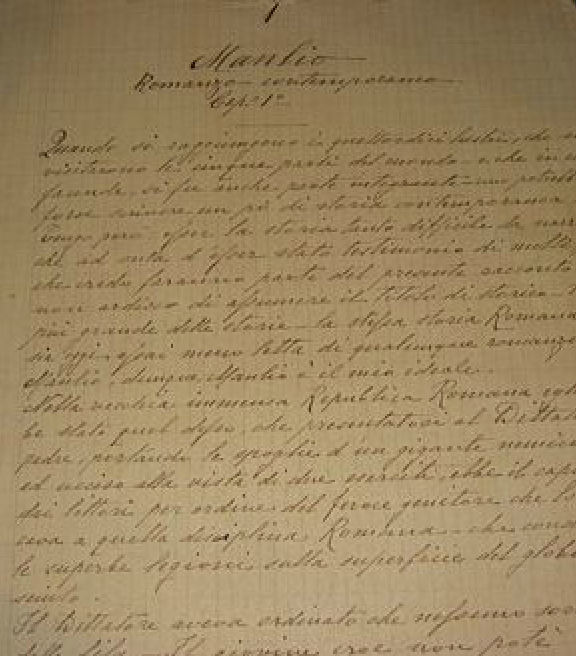 1
Manlio
Romanzo contemporaneo
Cap: 1º
Quando si raggiungono i quattordici lustri, che
visitarono le cinque parti del mondo - e che in
si fu anche parte integrante - uno
forse scrivere un pò di storia contemporanea
però esser la storia tanto difficile da
che ad onta d'esser stato testimonio di molti
che credo faranno parte del presente racconto
non ardisco di assumere il titolo di storico -
più grande delle storie - la stessa storia Romana
sia oggi assai meno letta di qualunque romanzo
Manlio, dunque, Manlio è il mio ideale.
Nella vecchia immensa Repubblica Romana
be stato quel desso, che presentatosi al Dittato
padre, portando le spoglie d'un gigante nemico
ed ucciso alla vista di due eserciti, ebbe il capo
dai littori per ordine del feroce genitore che
eva a quella disciplina Romana - che
le superbe legioni sulla superficie del globo
Il Dittatore aveva ordinato che nessuno
dalle file - Il giovine eroe non potè